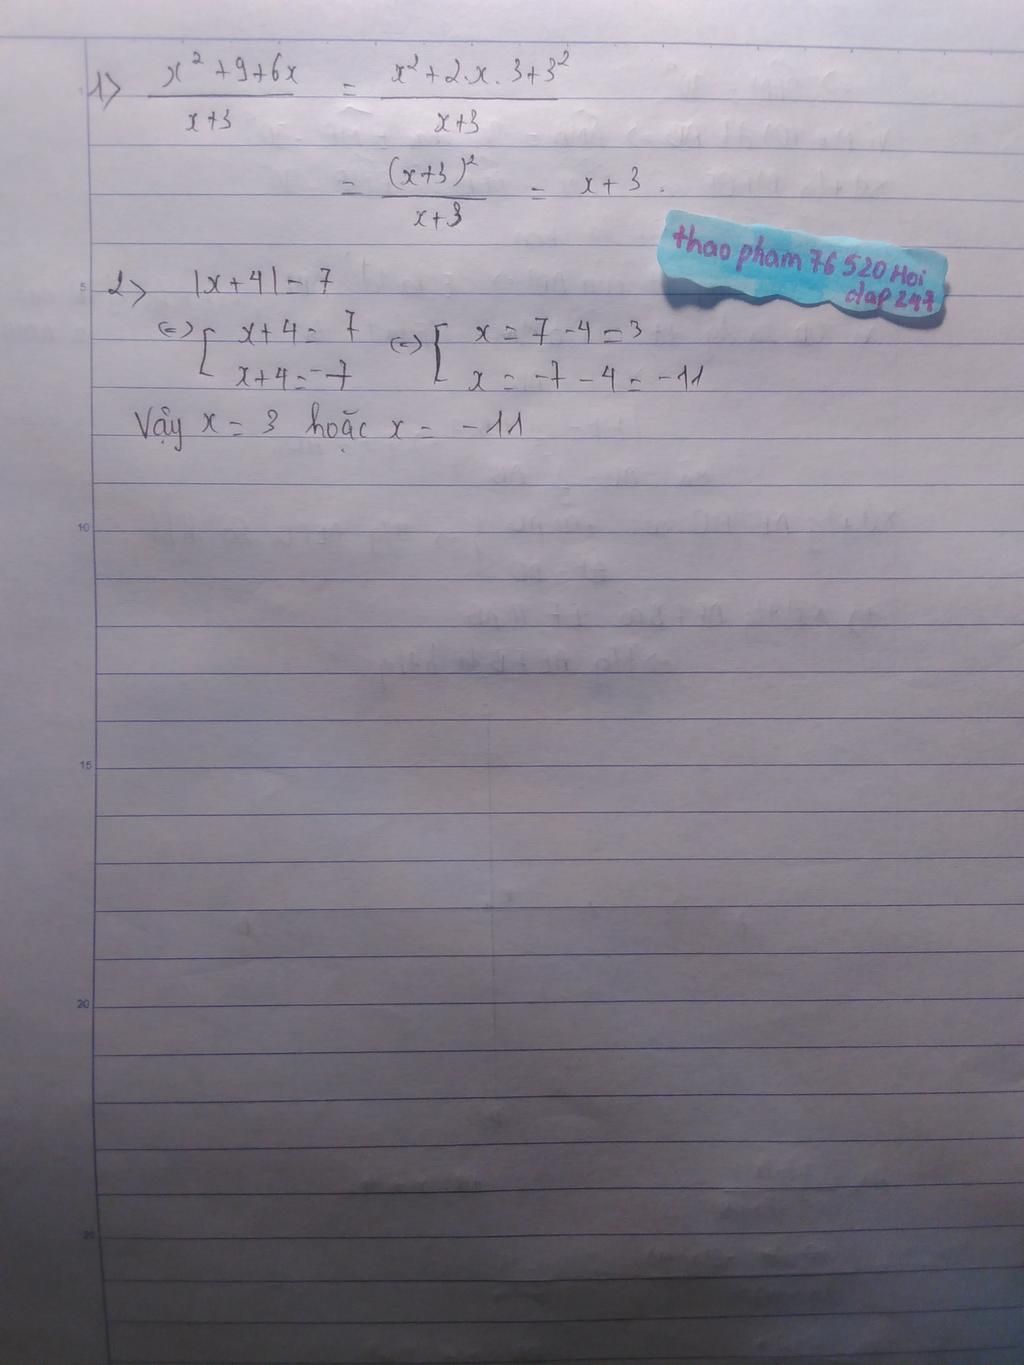 1> x² + 9 + 6x / x+3 = x² + 2.x.3 + 3² / x+3
= (x+3)² / x+3 = x + 3.
thao pham 76 520 Hoi
dap 247
2> |x + 4| = 7
<=> [ x + 4 = 7 <=> [ x = 7 - 4 = 3
x + 4 = -7 x = -7 - 4 = -11
Vậy x = 3 hoặc x = -11
5
10
15
20
25